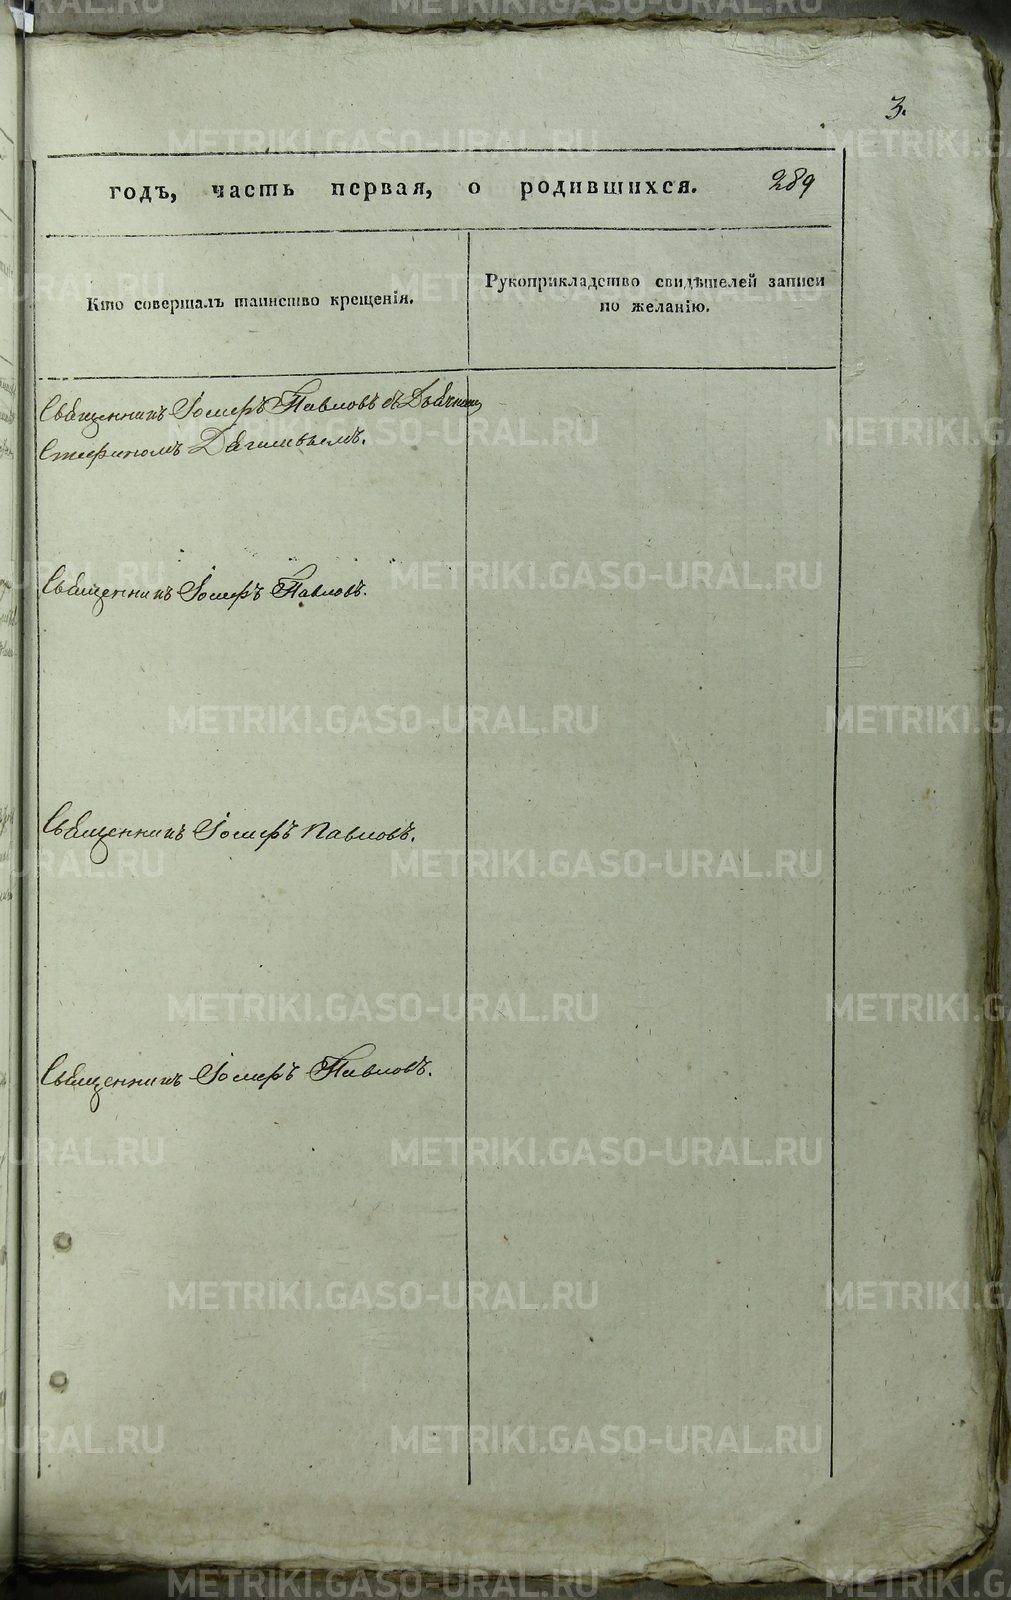 3.
годъ, часть первая, о родившихся. 289
Кто совершалъ таинство крещенія.
Рукоприкладство свидѣтелей записи
по желанію.
Священникъ Іосифъ Павловъ съ Дьячкомъ
Стефаномъ Дягилевымъ.
Священникъ Іосифъ Павловъ.
Священникъ Іосифъ Павловъ.
Священникъ Іосифъ Павловъ.
METRIKI.GASO-URAL.RU